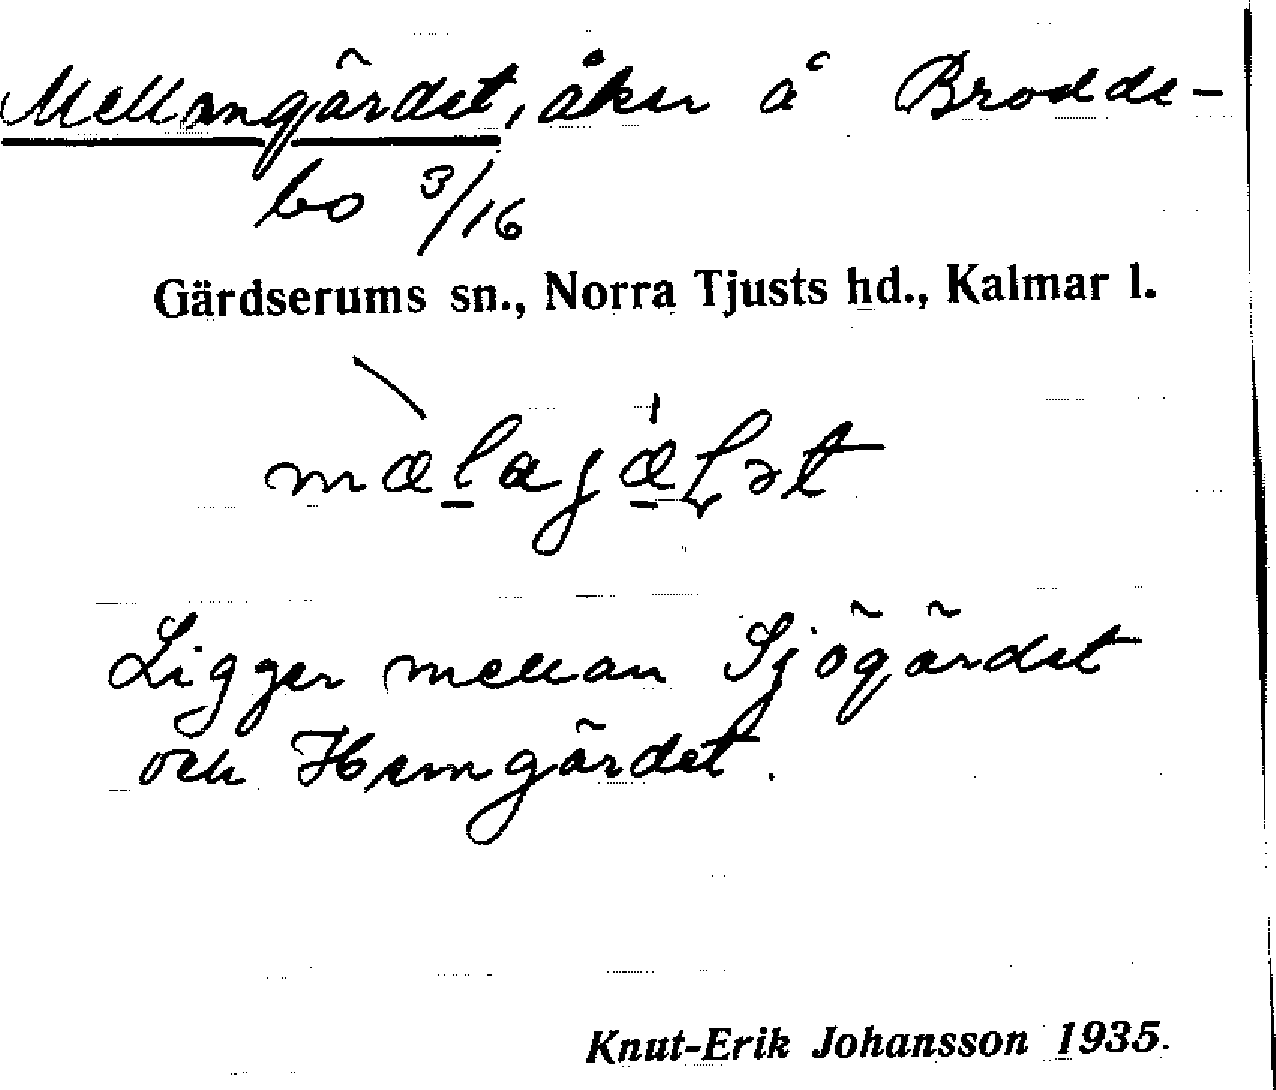 Mellangärdet, åker å Brodde-
bo 3/16
Gärdserums sn., Norra Tjusts hd., Kalmar l.
Ligger mellan Sjögärdet
och Hemgärdet.
Knut-Erik Johansson 1935.